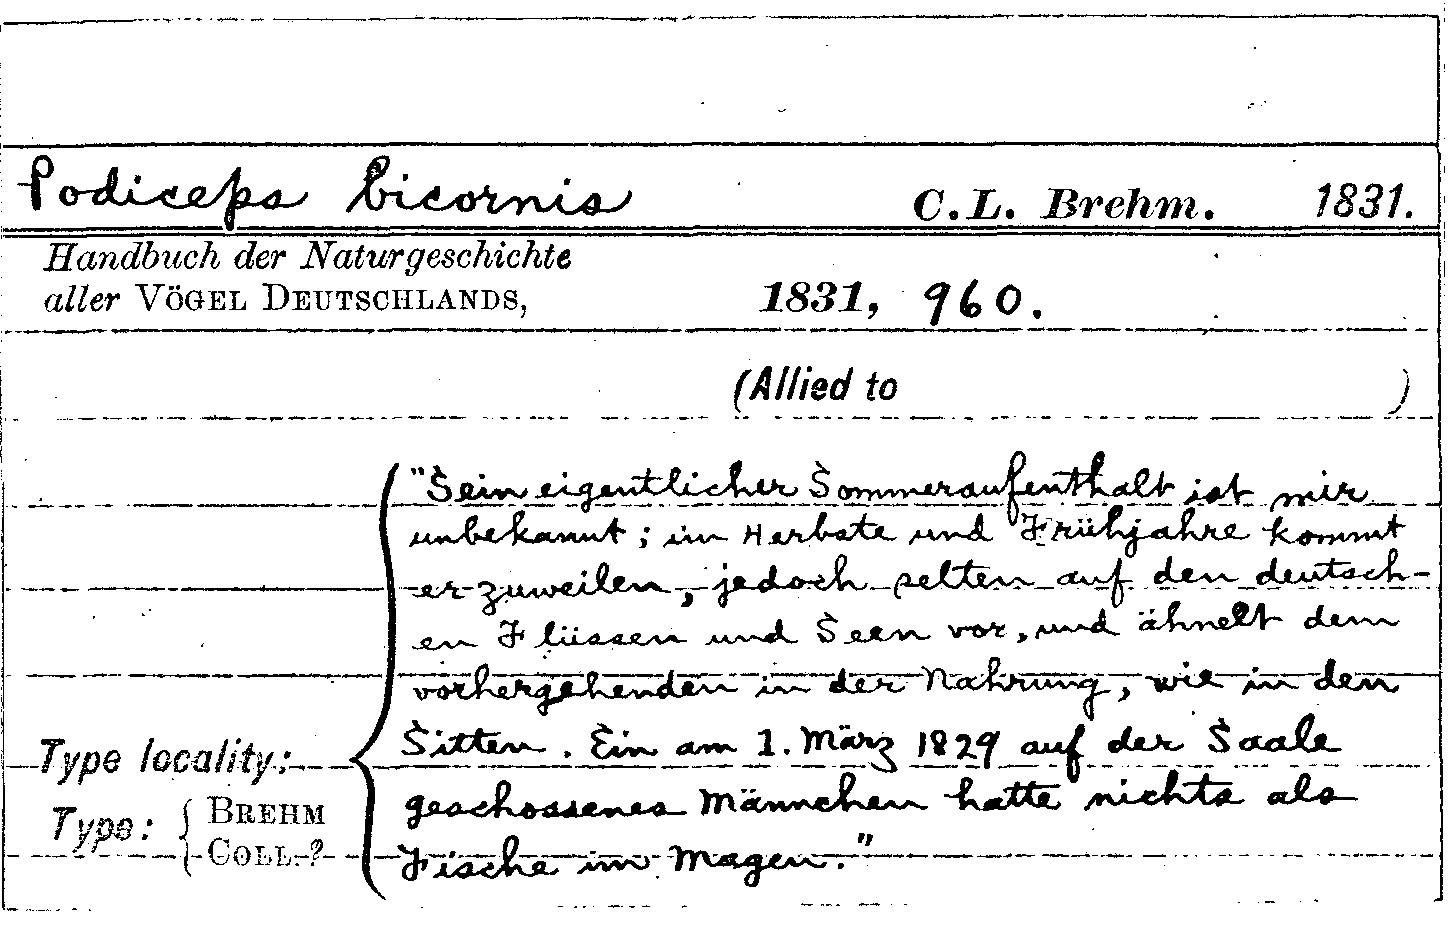 Podiceps bicornis C.L. Brehm. 1831.
Handbuch der Naturgeschichte
aller VÖGEL DEUTSCHLANDS, 1831, 960.
(Allied to )
"Sein eigentlicher Sommeraufenthalt ist mir
unbekannt; im Herbste und Frühjahre kommt
er zuweilen, jedoch selten auf den deutsch-
en Flüssen und Seen vor, und ähnelt dem
vorhergehenden in der Nahrung, wie in den
Sitten. Ein am 1. März 1829 auf der Saale
geschossenes Männchen hatte nichts als
Fische im Magen."
Type locality:
Type: { BREHM
COLL.?